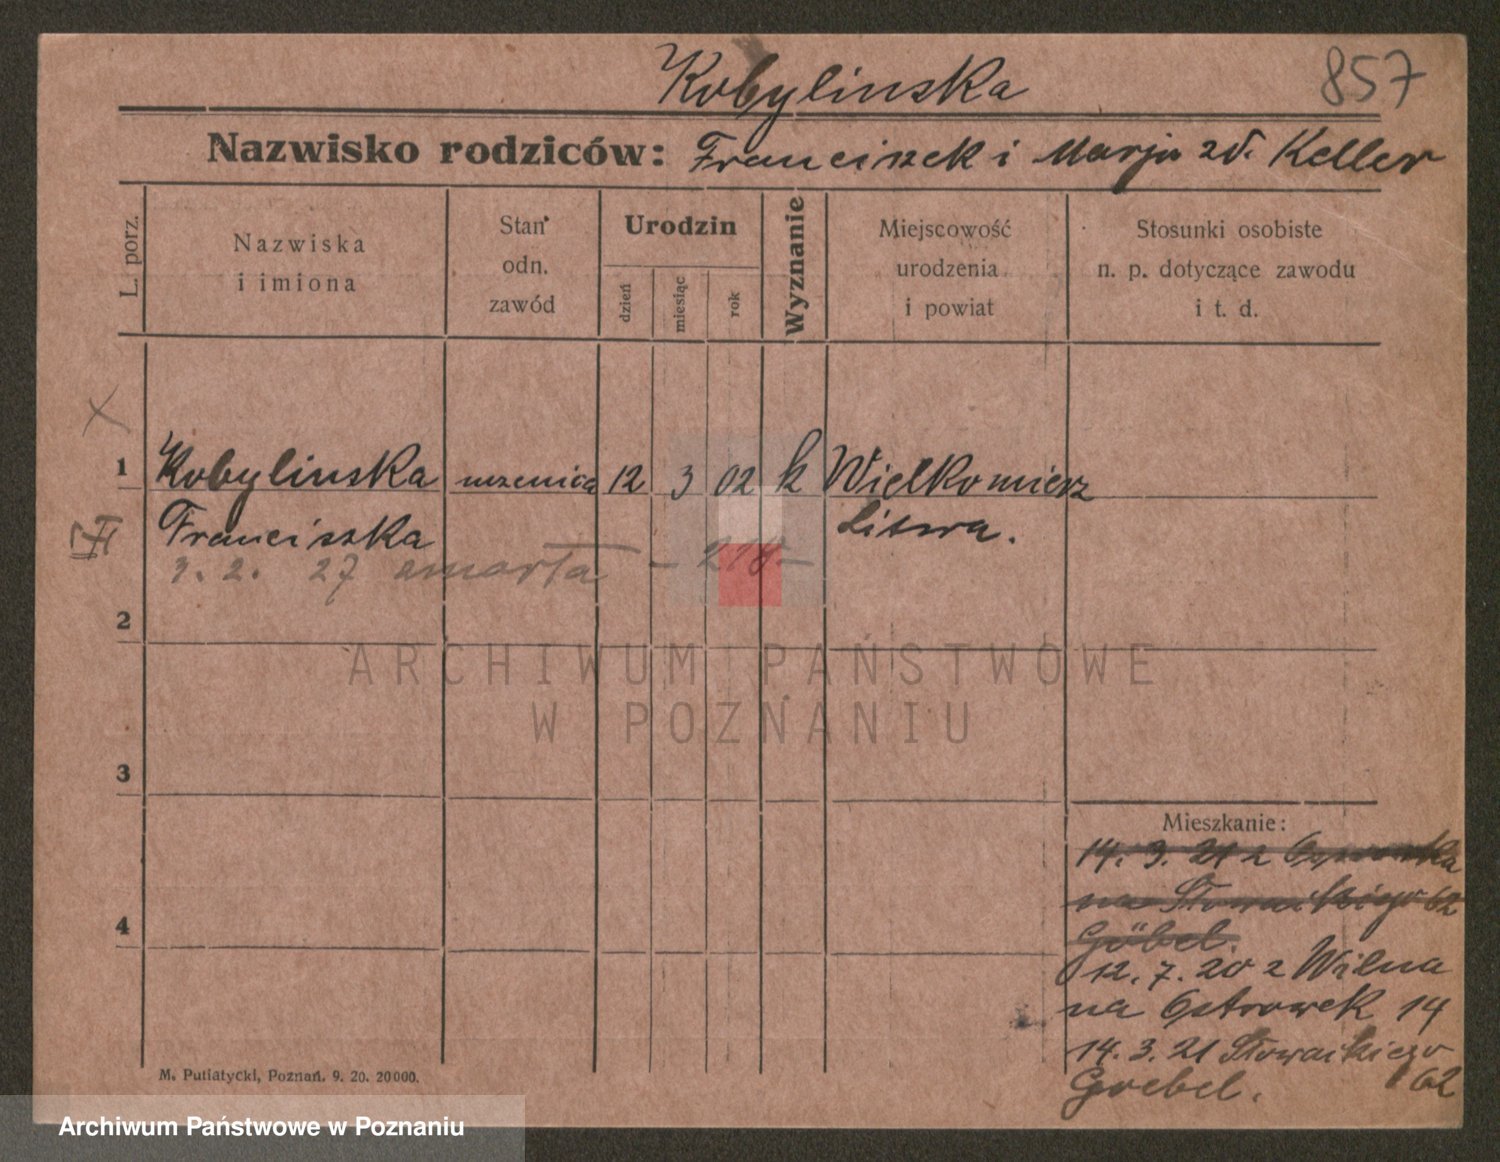 Kobylinska
857
Nazwisko rodziców: Franciszek i Marja zd. Keller
L. porz.
Nazwiska
i imiona
Stan
odn.
zawód
Urodzin
dzień
miesiąc
rok
Wyznanie
Miejscowość
urodzenia
i powiat
Stosunki osobiste
n. p. dotyczące zawodu
i t. d.
1 Kobylinska uczenica 12 3 02 k Wielkomierz
Franciszka Litwa.
3. 2. 27 umarła
2
ARCHIWUM PAŃSTWOWE
W POZNANIU
3
Mieszkanie:
14. 3. 21 z
na Słowackiego 62
4
Göbel.
12. 7. 20 z Wilna
na Ostrowek 14
14. 3. 21 Słowackiego
62
Goebel.
M. Putiatycki, Poznań. 9. 20. 20000.
Archiwum Państwowe w Poznaniu